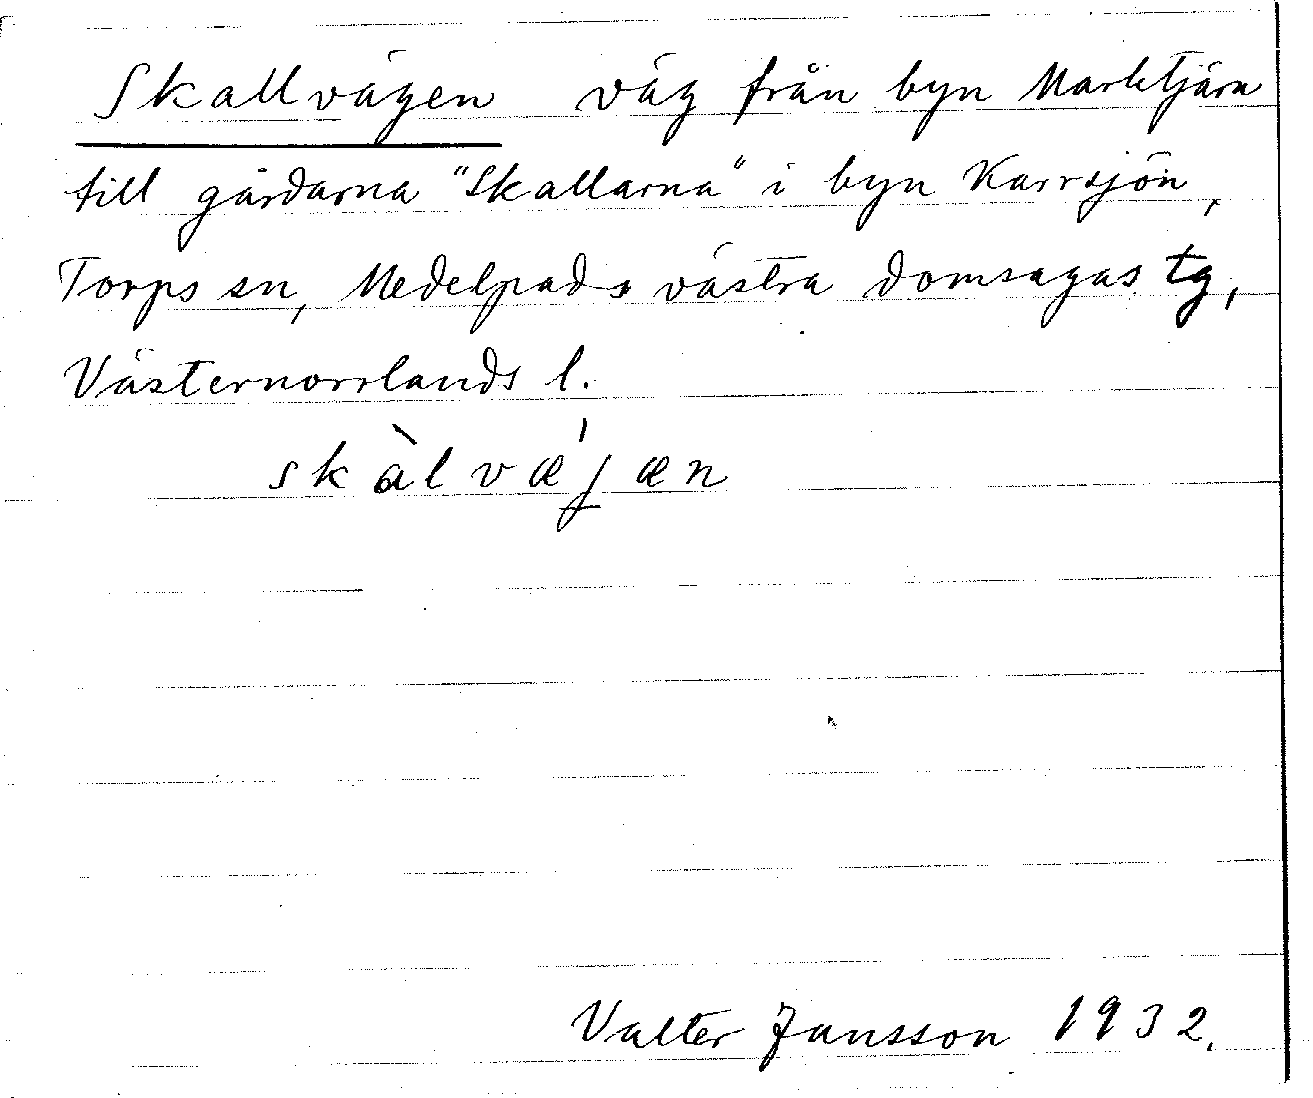 Skallvägen väg från byn Marktjärn
till gårdarna "Skallarna" i byn Karrsjön,
Torps sn, Medelpads västra domsagas tg,
Västernorrlands l.
skàlvǽjæn
Valter Jansson 1932.